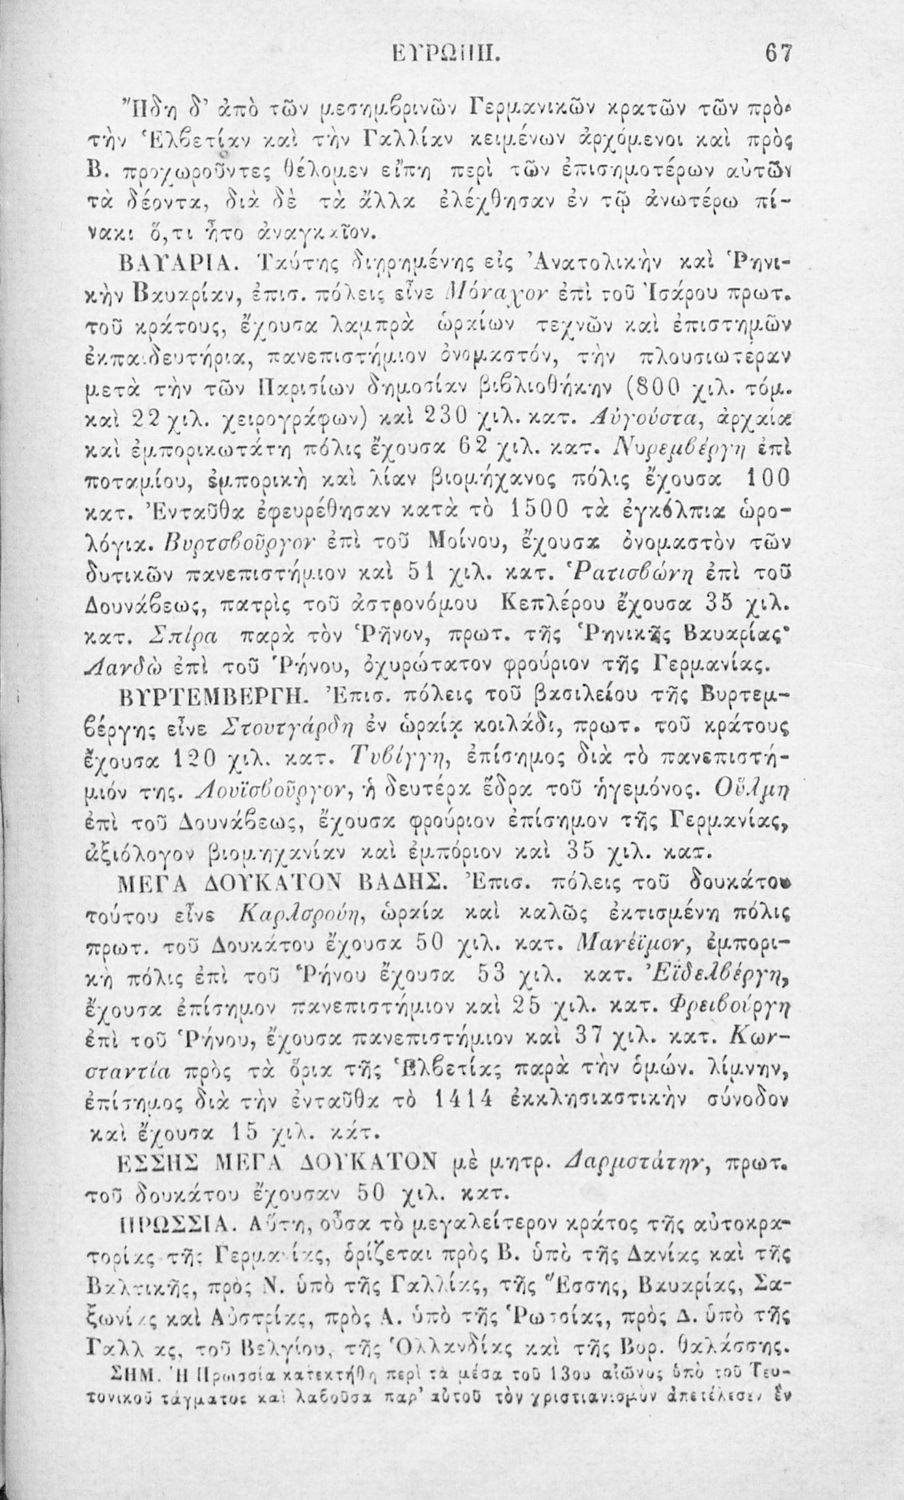 ΕΥΡΩΠΗ. 67
Ἤδη δ’ ἀπὸ τῶν μεσημβρινῶν Γερμανικῶν κρατῶν τῶν πρὸς
τὴν Ἑλβετίαν καὶ τὴν Γαλλίαν κειμένων ἀρχόμενοι καὶ πρὸς
Β. προχωροῦντες θέλομεν εἴπῃ περὶ τῶν ἐπισημοτέρων αὐτῶν
τὰ δέοντα, διὰ δὲ τὰ ἄλλα ἐλέχθησαν ἐν τῷ ἀνωτέρω πί-
νακι ὅ,τι ἦτο ἀναγκαῖον.
ΒΑΥΑΡΙΑ. Ταύτης διῃρημένης εἰς Ἀνατολικὴν καὶ Ῥηνι-
κὴν Βαυαρίαν, ἐπισ. πόλεις εἶνε Μόναχον ἐπὶ τοῦ Ἰσάρου πρωτ.
τοῦ κράτους, ἔχουσα λαμπρὰ ὡραίων τεχνῶν καὶ ἐπιστημῶν
ἐκπαιδευτήρια, πανεπιστήμιον ὀνομαστόν, τὴν πλουσιωτέραν
μετὰ τὴν τῶν Παρισίων δημοσίαν βιβλιοθήκην (800 χιλ. τόμ.
καὶ 22 χιλ. χειρογράφων) καὶ 230 χιλ. κατ. Αὐγούστα, ἀρχαία
καὶ ἐμπορικωτάτη πόλις ἔχουσα 62 χιλ. κατ. Νυρεμβέργη ἐπὶ
ποταμίου, ἐμπορικὴ καὶ λίαν βιομήχανος πόλις ἔχουσα 100
κατ. Ἐνταῦθα ἐφευρέθησαν κατὰ τὸ 1500 τὰ ἐγκόλπια ὡρο-
λόγια. Βυρτσβοῦργον ἐπὶ τοῦ Μοίνου, ἔχουσα ὀνομαστὸν τῶν
δυτικῶν πανεπιστήμιον καὶ 51 χιλ. κατ. Ῥατισβώνη ἐπὶ τοῦ
Δουνάβεως, πατρὶς τοῦ ἀστρονόμου Κεπλέρου ἔχουσα 35 χιλ.
κατ. Σπίρα παρὰ τὸν Ῥῆνον, πρωτ. τῆς Ῥηνικῆς Βαυαρίας·
Λανδὼ ἐπὶ τοῦ Ῥήνου, ὀχυρώτατον φρούριον τῆς Γερμανίας.
ΒΥΡΤΕΜΒΕΡΓΗ. Ἐπισ. πόλεις τοῦ βασιλείου τῆς Βυρτεμ-
βέργης εἶνε Στουτγάρδη ἐν ὡραίᾳ κοιλάδι, πρωτ. τοῦ κράτους
ἔχουσα 120 χιλ. κατ. Τυβίγγη, ἐπίσημος διὰ τὸ πανεπιστή-
μιόν της. Λουϊσβοῦργον, ἡ δευτέρα ἕδρα τοῦ ἡγεμόνος. Οὔλμη
ἐπὶ τοῦ Δουνάβεως, ἔχουσα φρούριον ἐπίσημον τῆς Γερμανίας,
ἀξιόλογον βιομηχανίαν καὶ ἐμπόριον καὶ 35 χιλ. κατ.
ΜΕΓΑ ΔΟΥΚΑΤΟΝ ΒΑΔΗΣ. Ἐπισ. πόλεις τοῦ δουκάτου
τούτου εἶνε Καρλσρούη, ὡραία καὶ καλῶς ἐκτισμένη πόλις
πρωτ. τοῦ Δουκάτου ἔχουσα 50 χιλ. κατ. Μανέϊμον, ἐμπορι-
κὴ πόλις ἐπὶ τοῦ Ῥήνου ἔχουσα 53 χιλ. κατ. Ἐϊδελβέργη,
ἔχουσα ἐπίσημον πανεπιστήμιον καὶ 25 χιλ. κατ. Φρειβούργη
ἐπὶ τοῦ Ῥήνου, ἔχουσα πανεπιστήμιον καὶ 37 χιλ. κατ. Κων-
σταντία πρὸς τὰ ὅρια τῆς Ἑλβετίας παρὰ τὴν ὁμών. λίμνην,
ἐπίσημος διὰ τὴν ἐνταῦθα τὸ 1414 ἐκκλησιαστικὴν σύνοδον
καὶ ἔχουσα 15 χιλ. κάτ.
ΕΣΣΗΣ ΜΕΓΑ ΔΟΥΚΑΤΟΝ μὲ μητρ. Δαρμστάτην, πρωτ.
τοῦ δουκάτου ἔχουσαν 50 χιλ. κατ.
ΠΡΩΣΣΙΑ. Αὕτη, οὖσα τὸ μεγαλείτερον κράτος τῆς αὐτοκρα-
τορίας τῆς Γερμανίας, ὁρίζεται πρὸς Β. ὑπὸ τῆς Δανίας καὶ τῆς
Βαλτικῆς, πρὸς Ν. ὑπὸ τῆς Γαλλίας, τῆς Ἔσσης, Βαυαρίας, Σα-
ξωνίας καὶ Αὐστρίας, πρὸς Α. ὑπὸ τῆς Ῥωσσίας, πρὸς Δ. ὑπὸ τῆς
Γαλλίας, τοῦ Βελγίου, τῆς Ὁλλανδίας καὶ τῆς Βορ. θαλάσσης.
ΣΗΜ. Ἡ Πρωσσία κατεκτήθη περὶ τὰ μέσα τοῦ 13ου αἰῶνος ὑπὸ τοῦ Τευ-
τονικοῦ τάγματος καὶ λαβοῦσα παρ’ αὐτοῦ τὸν χριστιανισμὸν ἀπετέλεσεν ἓν